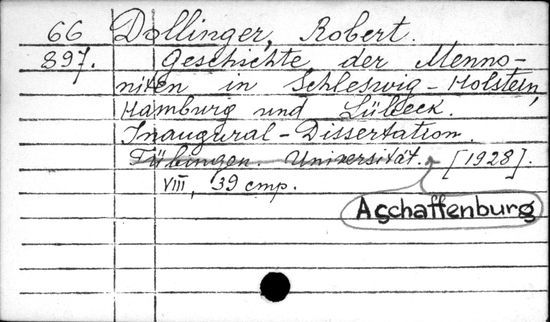 66 Dollinger, Robert.
897. Geschichte der Menno-
niten in Schleswig-Holstein,
Hamburg und Lübeck.
Inaugural-Dissertation.
Tübingen. Universität. [1928].
VIII, 39 стр.
Aschaffenburg